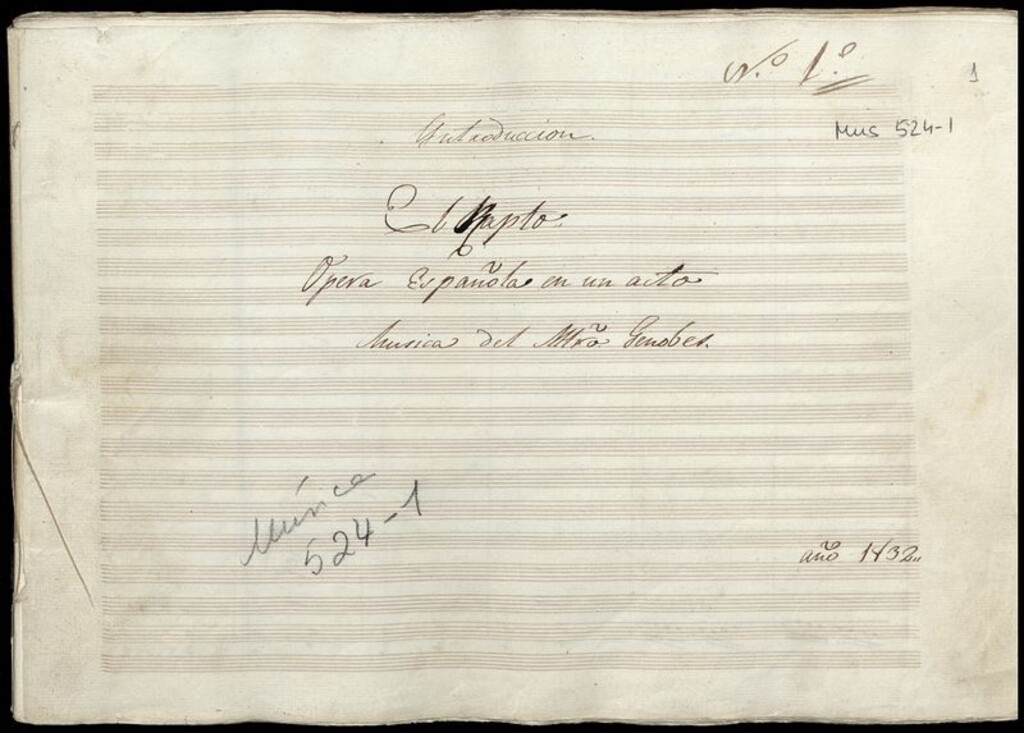 Nº 1º
1
Introduccion.
Mus 524-1
El Rapto.
Opera Española en un acto
Musica del Mtrõ Genobes.
Música
524-1
año 1832